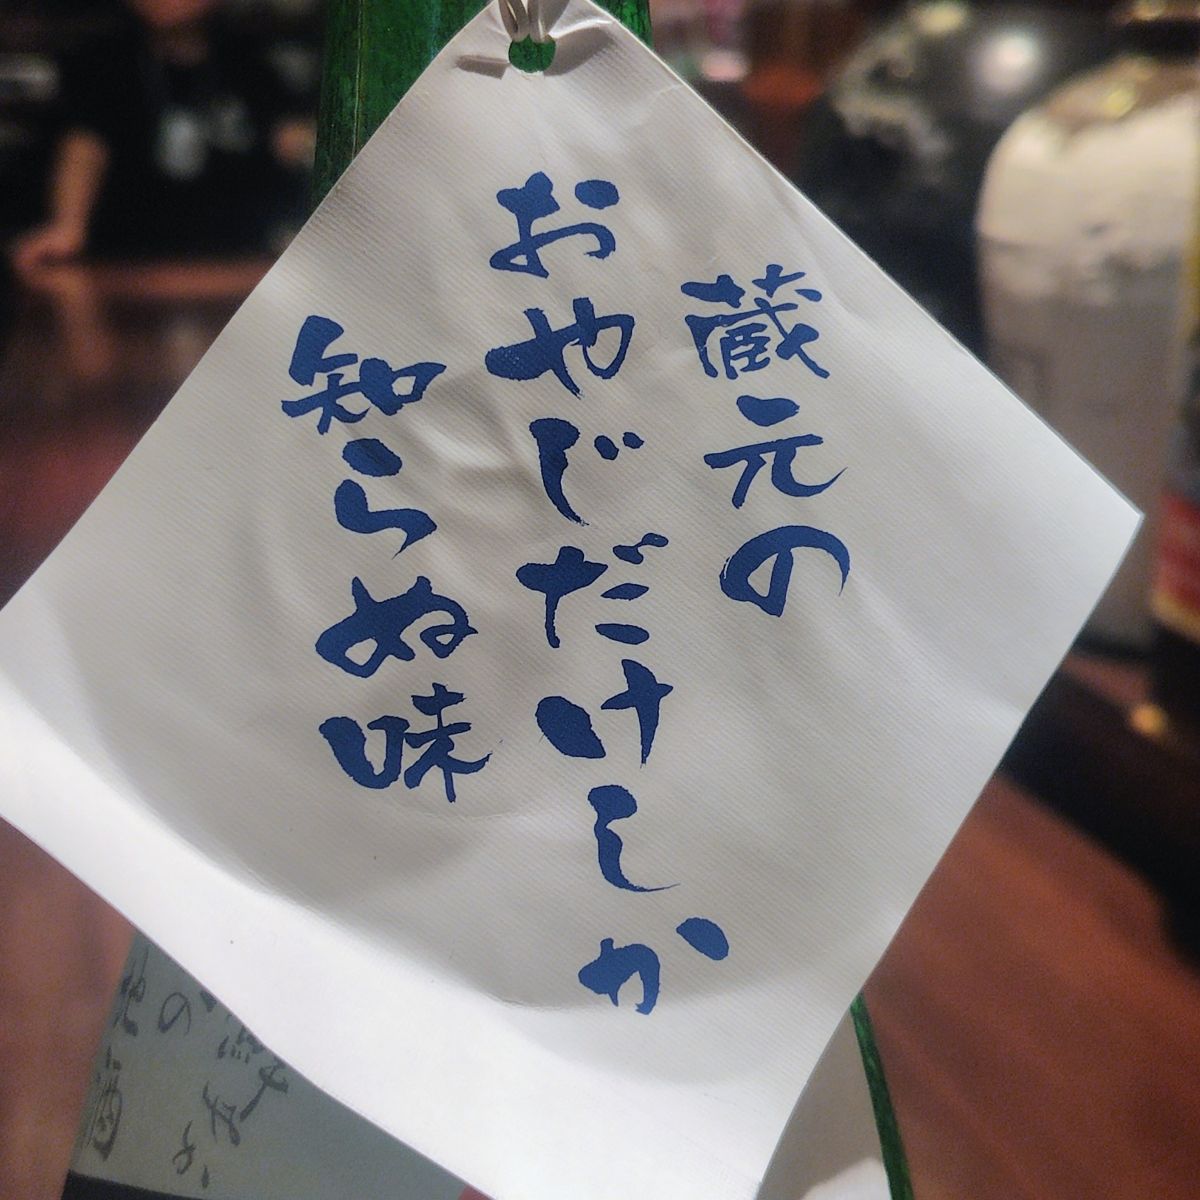 蔵元の
おやじだけしか
知らぬ味